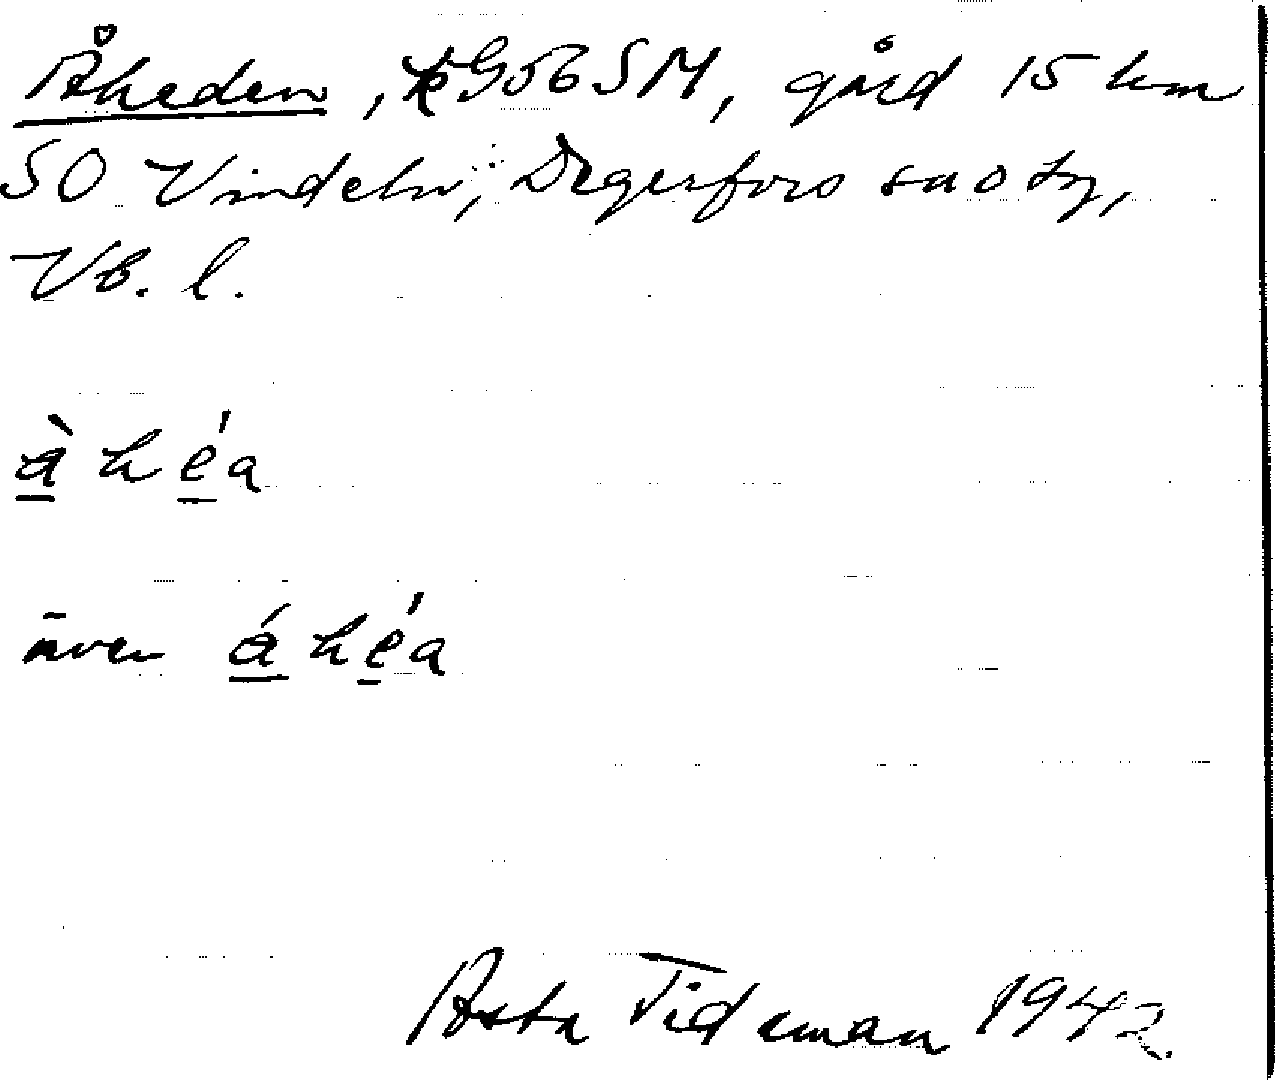 Åheden, GSÖBSM, gård 15 km
SO Vindeln, Degerfors sn o tg,
Vb. l.
à̲ h é̲ a
även á̲ h é̲ a
Asta Tideman 1942.